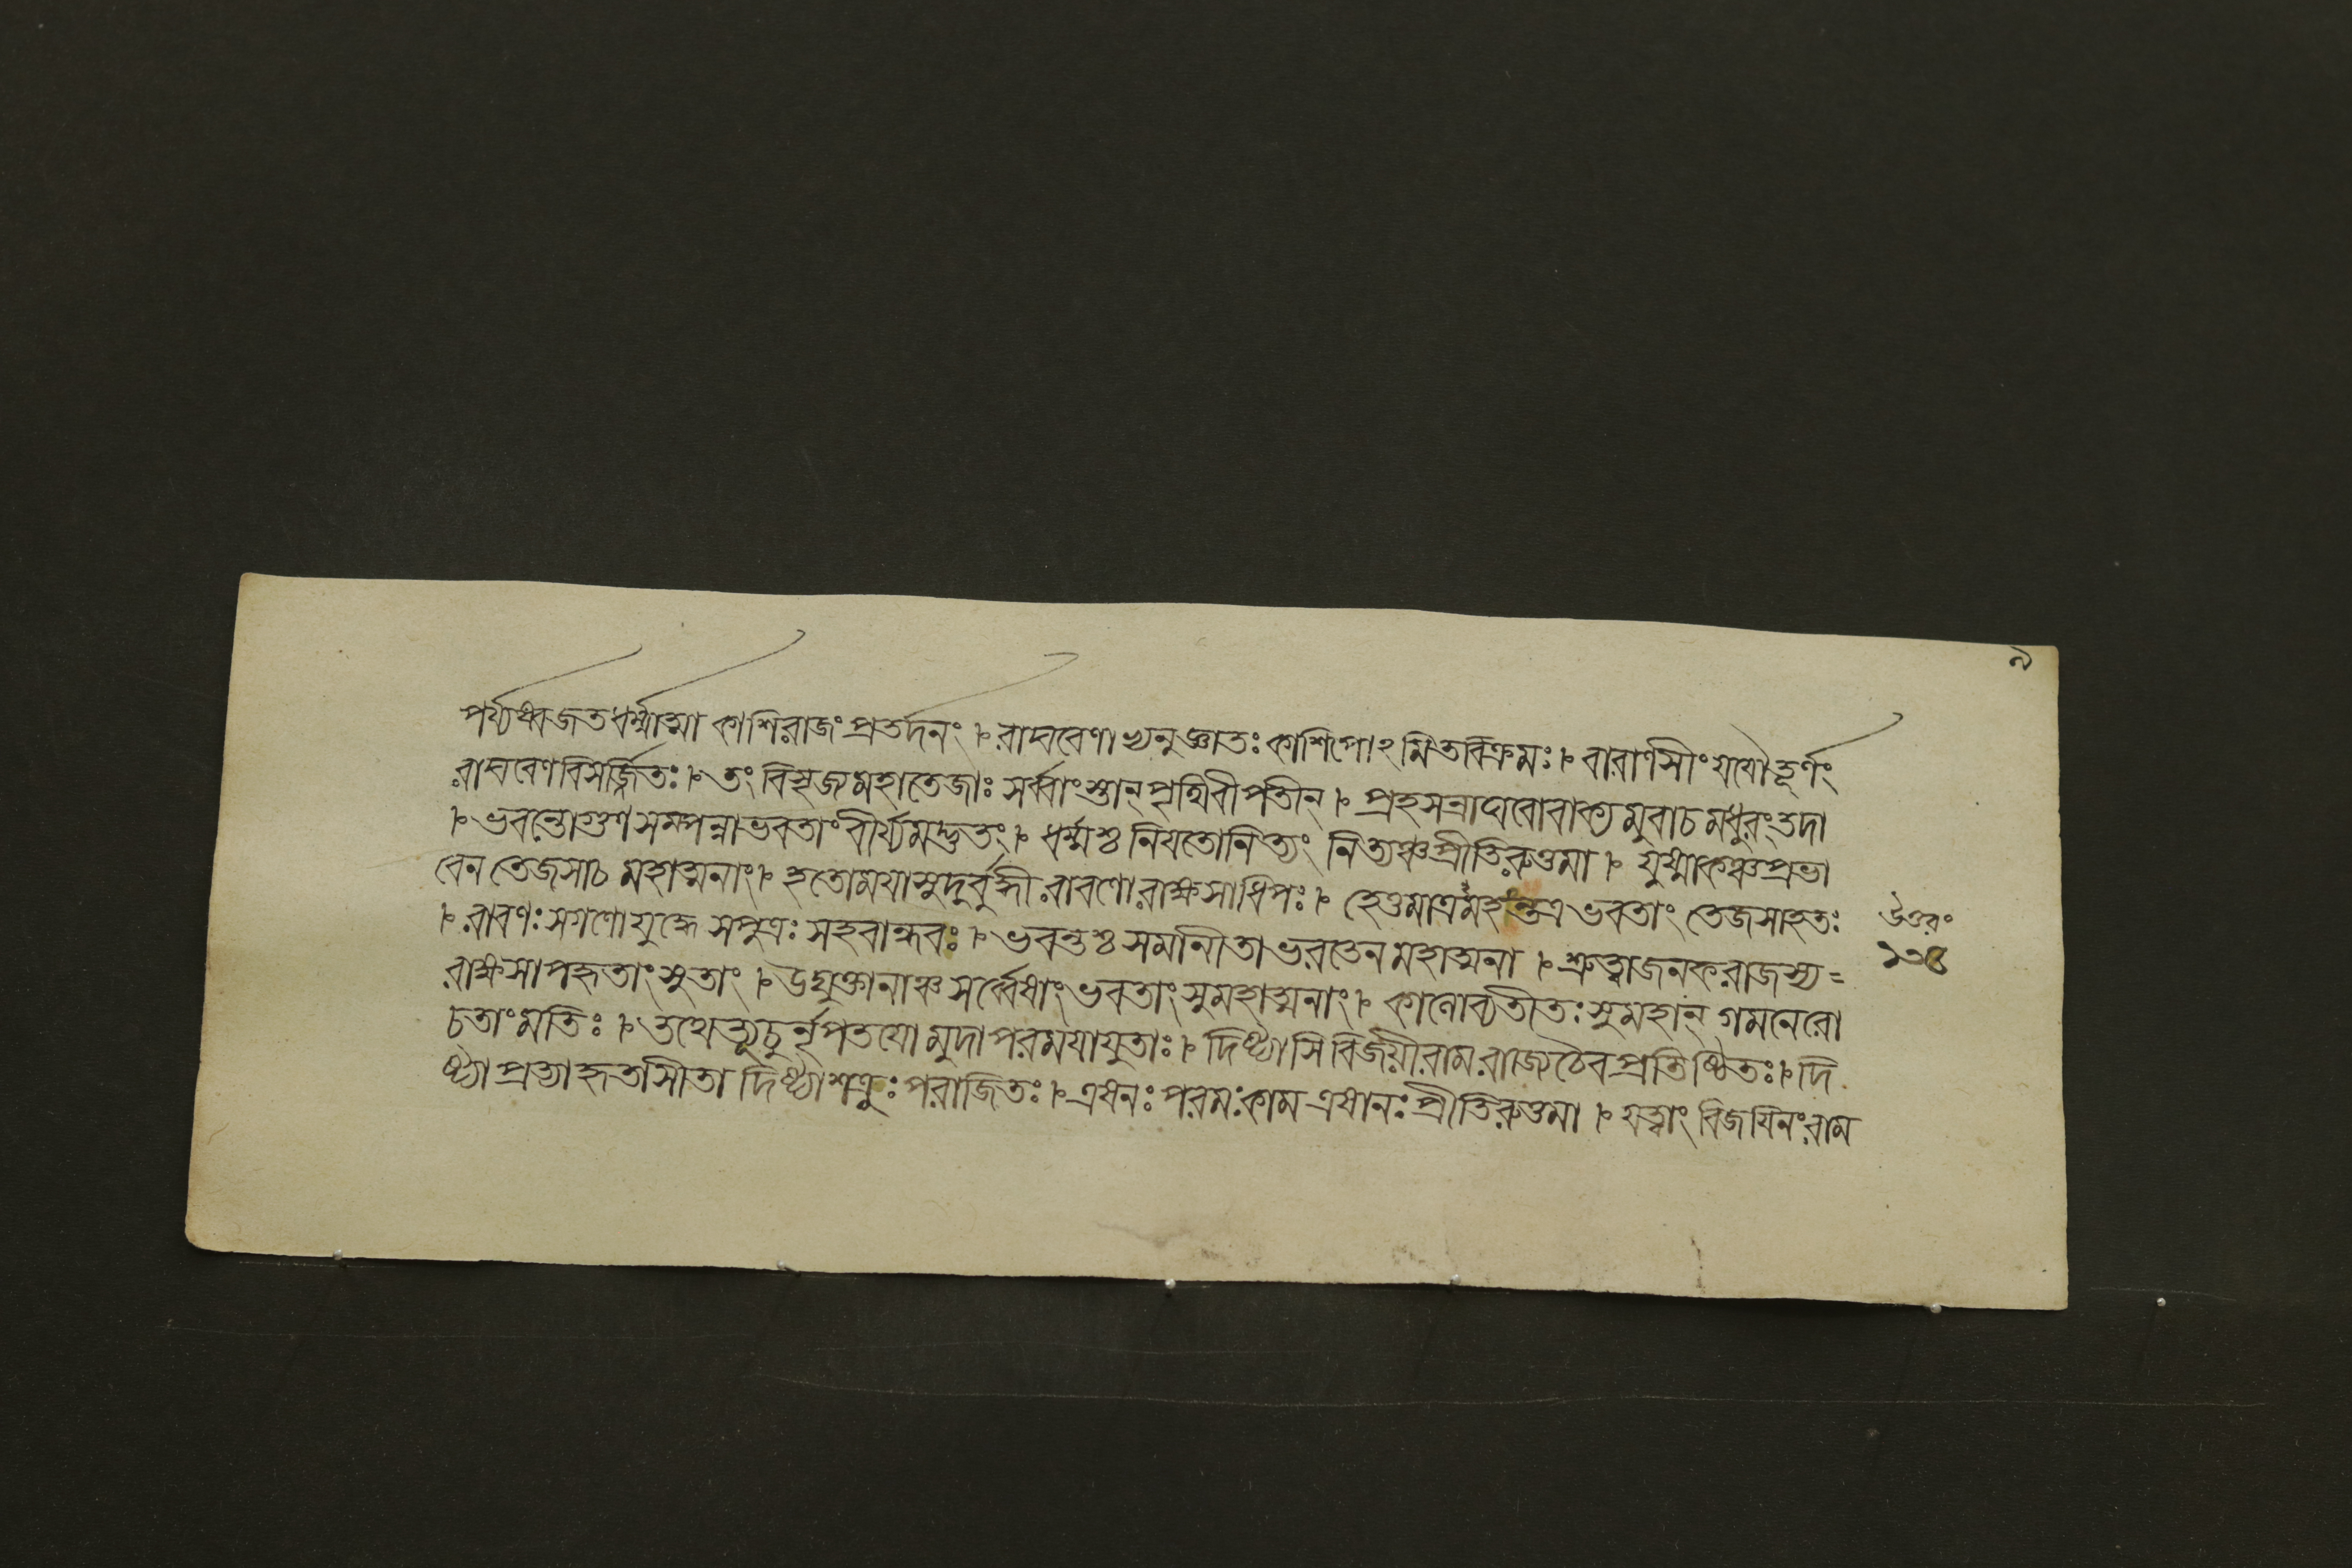 ৯
পর্য্যষ্বজত ধর্ম্মাত্মা কাশিরাজং প্রতর্দনং ৷ রাঘবেণাভ্যনুজ্ঞাতঃ কাশিপোঽমিতবিক্রমঃ ৷ বারাণসীং যযৌ তূর্ণং
রাঘবেণ বিসর্জ্জিতঃ ৷ তং বিসৃজ্য মহাতেজাঃ সর্ব্বাংস্তান্ পৃথিবীপতীন্ ৷ প্রহসন্রাঘবো বাক্যমুবাচ মধুরং তদা
৷ ভবন্তো গুণসম্পন্না ভবতাং বীর্য্যমদ্ভুতং ৷ ধর্ম্মশ্চ নিয়তো নিত্যং নিত্যঞ্চ প্রীতিরুত্তমা ৷ যুষ্মাকঞ্চ প্রভা
বেন তেজসা চ মহাত্মনাং ৷ হতো ময়া সুদুর্বুদ্ধী রাবণো রাক্ষসাধিপঃ ৷ হেতুমাত্রমহন্তত্র ভবতাং তেজসা হতঃ
৷ রাবণঃ সগণো যুদ্ধে সপুত্রঃ সহবান্ধবঃ ৷ ভবন্তশ্চ সমানীতা ভরতেন মহাত্মনা ৷ শ্রুত্বা জনকরাজস্য =
রাক্ষসাপহৃতাং সুতাং ৷ উদ্যুক্তানাঞ্চ সর্ব্বেষাং ভবতাং সুমহাত্মনাং ৷ কালো ব্যতীতঃ সুমহান্ গমনে রো
চতাং মতিঃ ৷ তথেত্যূচুর্নৃপতয়ো মুদা পরময়া যুতাঃ ৷ দিষ্ট্যাসি বিজয়ী রাম রাজ্যে চৈব প্রতিষ্ঠিতঃ ৷ দি
ষ্ট্যা প্রত্যাহৃতা সীতা দিষ্ট্যা শত্রুঃ পরাজিতঃ ৷ এষ নঃ পরমঃ কাম এষা নঃ প্রীতিরুত্তমা ৷ যত্ত্বাং বিজয়িনং রাম
উত্তরং
১৩৪